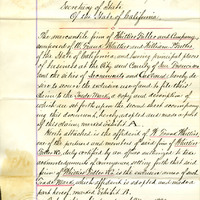 Secretary of State
Of the State of California.
The mercantile firm of Whittier Fuller and Company
composed of W. Frank Whittier and William Fuller
of the State of California, and having principal places
of business at the City and County of San Francisco
and the cities of Sacramento and Oakland, hereby de-
sire to secure the exclusive use of and to file this
claim to the Trade Mark, a copy and description of
which are set forth upon the second sheet accompany-
ing this document, hereby adopted and made a part
of this claim, marked Exhibit A.
Hereto attached is the affidavit of W. Frank Whittier
one of the partners and members of said firm of Whittier
Fuller & Co., duly certified by an officer authorized to take
acknowledgments of conveyances setting forth that said
firm of Whittier Fuller & Co. is the exclusive owner of said
Trade Mark, which affidavit is adopted and made a
part hereof marked Exhibit B.